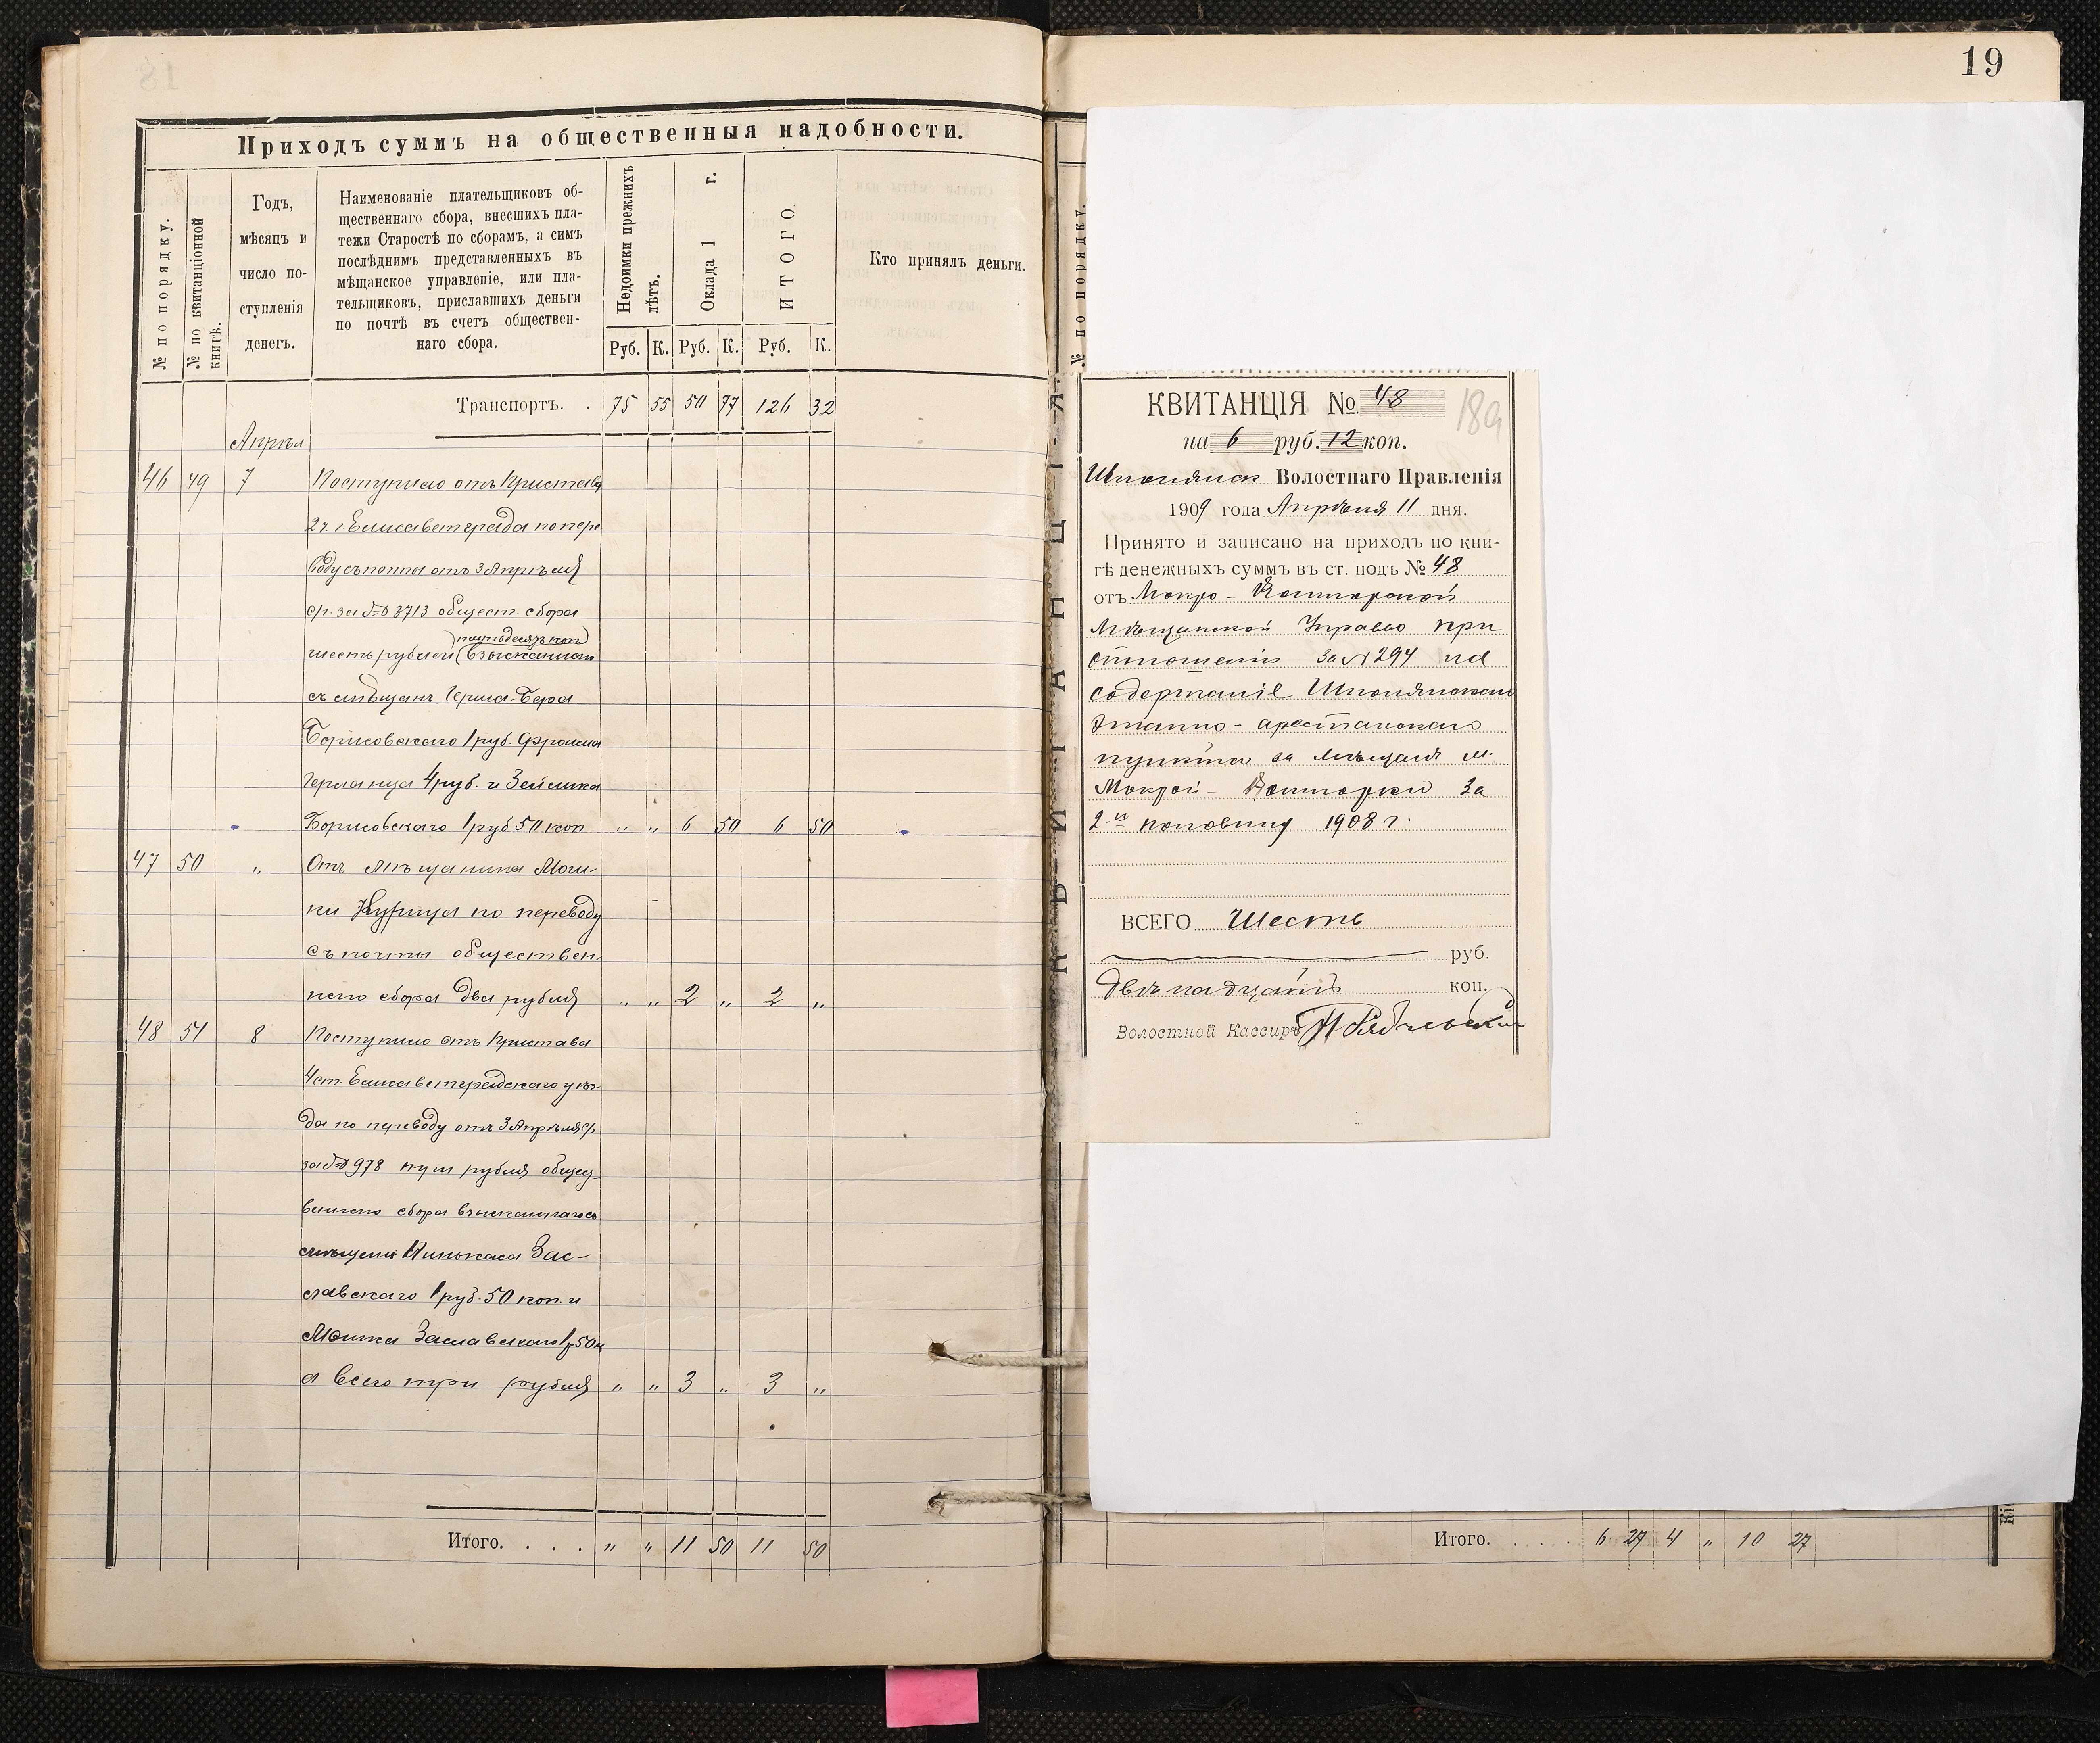 19
Приходъ суммъ на общественныя надобности.
№ по порядку.
№ по квитанціонной
книгѣ.
Годъ,
мѣсяцъ и
число по-
ступленія
денегъ.
Наименованіе плательщиковъ об-
щественнаго сбора, внесшихъ пла-
тежи Старостѣ по сборамъ, а симъ
послѣднимъ представленныхъ въ
мѣщанское управленіе, или пла-
тельщиковъ, приславшихъ деньги
по почтѣ въ счетъ обществен-
наго сбора.
Недоимки прежнихъ
лѣтъ.
Оклада 1 г.
ИТОГО
Кто принялъ деньги.
Руб. К. Руб. К. Руб. К.
Транспортъ. . 75 55 50 77 126 32
Апрѣл
46 49 7 Поступило отъ Пристава
2 ч. г Елисаветграда по пере
воду съ почты отъ 3 Апрѣля
с/г. за № 3713 общест. сбора
пятьдесятъ коп
шесть рублей взысканнаго
съ мѣщанъ Герша-Бера
Борисовскаго 1 руб. Фроима
Германца 4 руб. и Зейлика
Борисовскаго 1 руб 50 коп " " 6 50 6 50
47 50 " Отъ мѣщанина Мош-
ки Купца по переводу
съ почты обществен
наго сбора два рубля " " 2 " 2 "
48 51 8 Поступило отъ Пристава
4 ст. Елисаветградскаго уѣз-
да по переводу отъ 3 Апрѣля с/г.
за № 978 три рубля общест
веннаго сбора взысканнаго съ
мѣщанъ Пинхаса Зас-
лавскаго 1 руб. 50 коп. и
Мошка Заславскаго 1 р 50 к
а всего три рубля " " 3 " 3 "
Итого. . . . " " 11 50 11 50
№ по порядку.
КВИТАНЦІЯ
КВИТАНЦІЯ №. 48
18а
на 6 руб. 12 коп.
Шполянск Волостнаго Правленія
1909 года Апрѣля 11 дня.
Принято и записано на приходъ по кни-
гѣ денежныхъ суммъ въ ст. подъ № 48
отъ Мокро-
Мѣщанской Управы при
отношеніи за № 294 на
содержаніе Шполянскаго
Этапно-арестанскаго
пункта за мѣщанъ м.
Мокрой- за
2ю половину 1908 г.
ВСЕГО Шесть
руб.
двѣнадцать коп.
Волостной Кассиръ
Итого. . . . 6 27 4 " 10 27